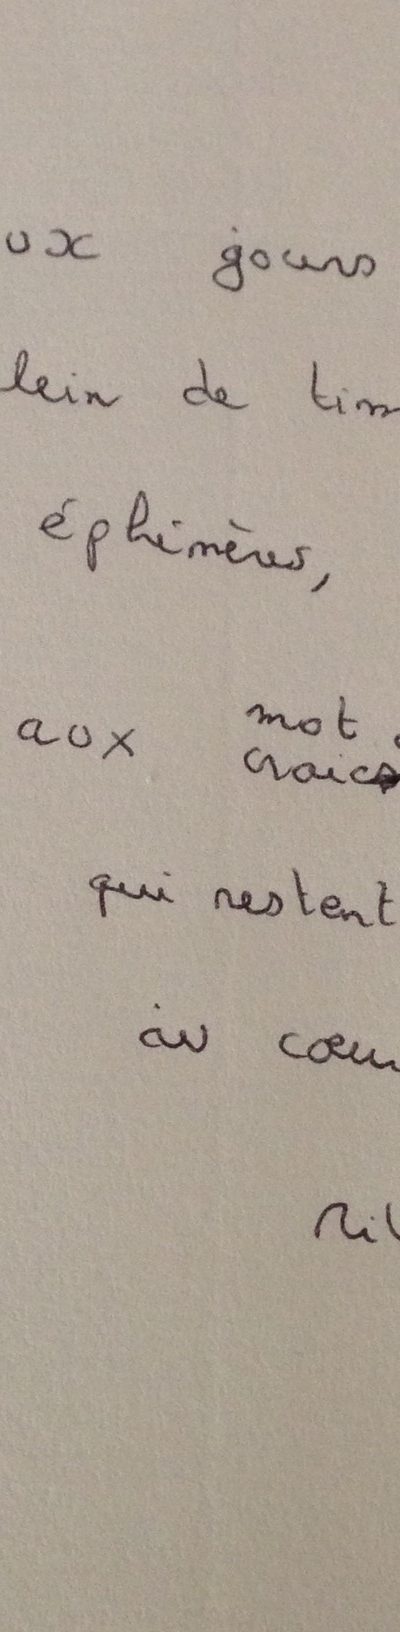 ux jours
lein de tim
éphémères,
aux mot
qui restent
au cœu